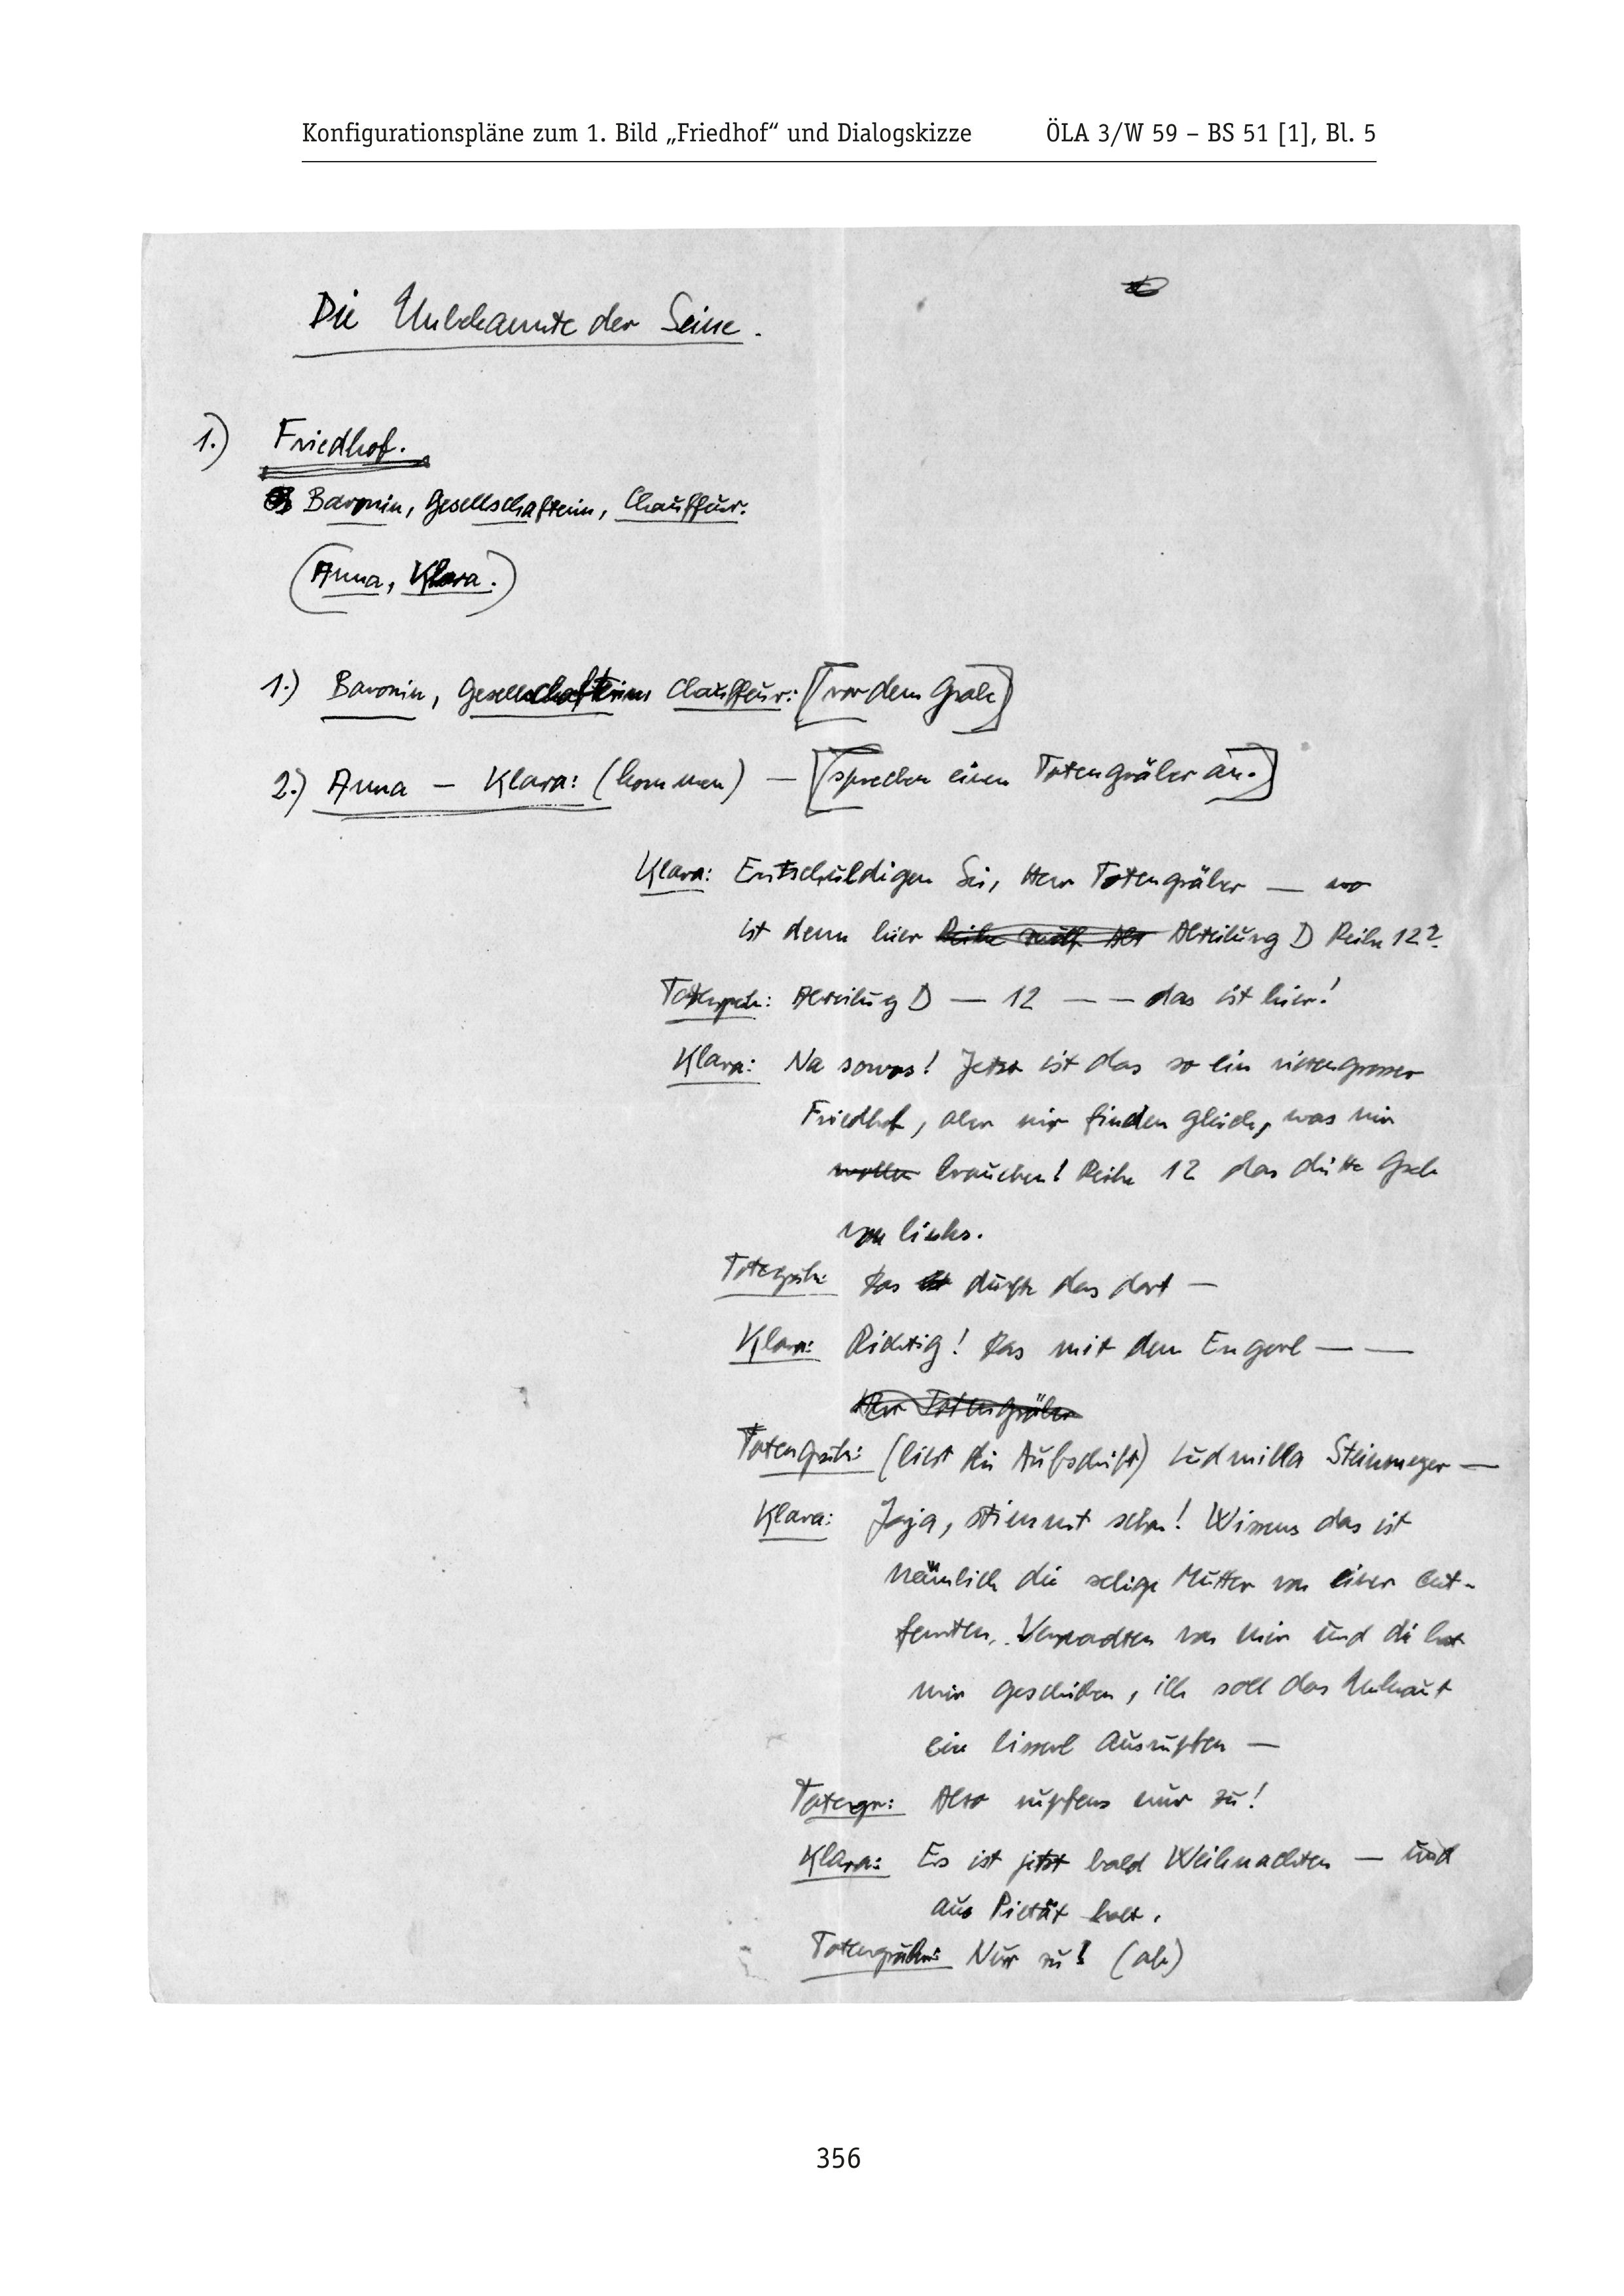 Konfigurationspläne zum 1. Bild „Friedhof“ und Dialogskizze ÖLA 3/W 59 – BS 51 [1], Bl. 5
Die Unbekannte der Seine.
1.) Friedhof.
Baronin, Gesellschafterin, Chauffeur.
(Anna, Klara.)
1.) Baronin, Gesellschafterin Chauffeur: [(vor dem Grab)]
2.) Anna – Klara: (kommen) – [(sprechen einen Totengräber an.)]
Klara: Entschuldigen Sie, Herr Totengräber — wo
ist denn hier Reihe zwölf Abt Abteilung D Reihe 12?
Totengräb: Abteilung D — 12 — — das ist hier!
Klara: Na sowas! Jetzt ist das so ein riesengrosser
Friedhof, aber wir finden gleich, was wir
wollen brauchen! Reihe 12 das dritte Grab
von links.
Totengräb: Das ist dürfte das dort —
Klara: Richtig! Das mit dem Engerl — —
Herr Totengräber
Totengräb: (liest die Aufschrift) Ludmilla Steinmeyer —
Klara: Jaja, stimmt schon! Wissens das ist
nämlich die selige Mutter von einer ent-
fernten Verwandten von mir und die hat
mir geschrieben, ich soll das Unkraut
ein bisserl ausrupfen —
Totengr: Also rupfens nur zu!
Klara: Es ist jetzt bald Weihnachten — und
aus Pietät halt.
Totengräber: Nur zu! (ab)
356